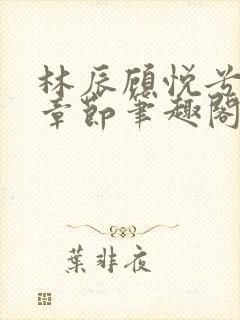 林辰顾悦兮
章节笔趣阁
葉非夜